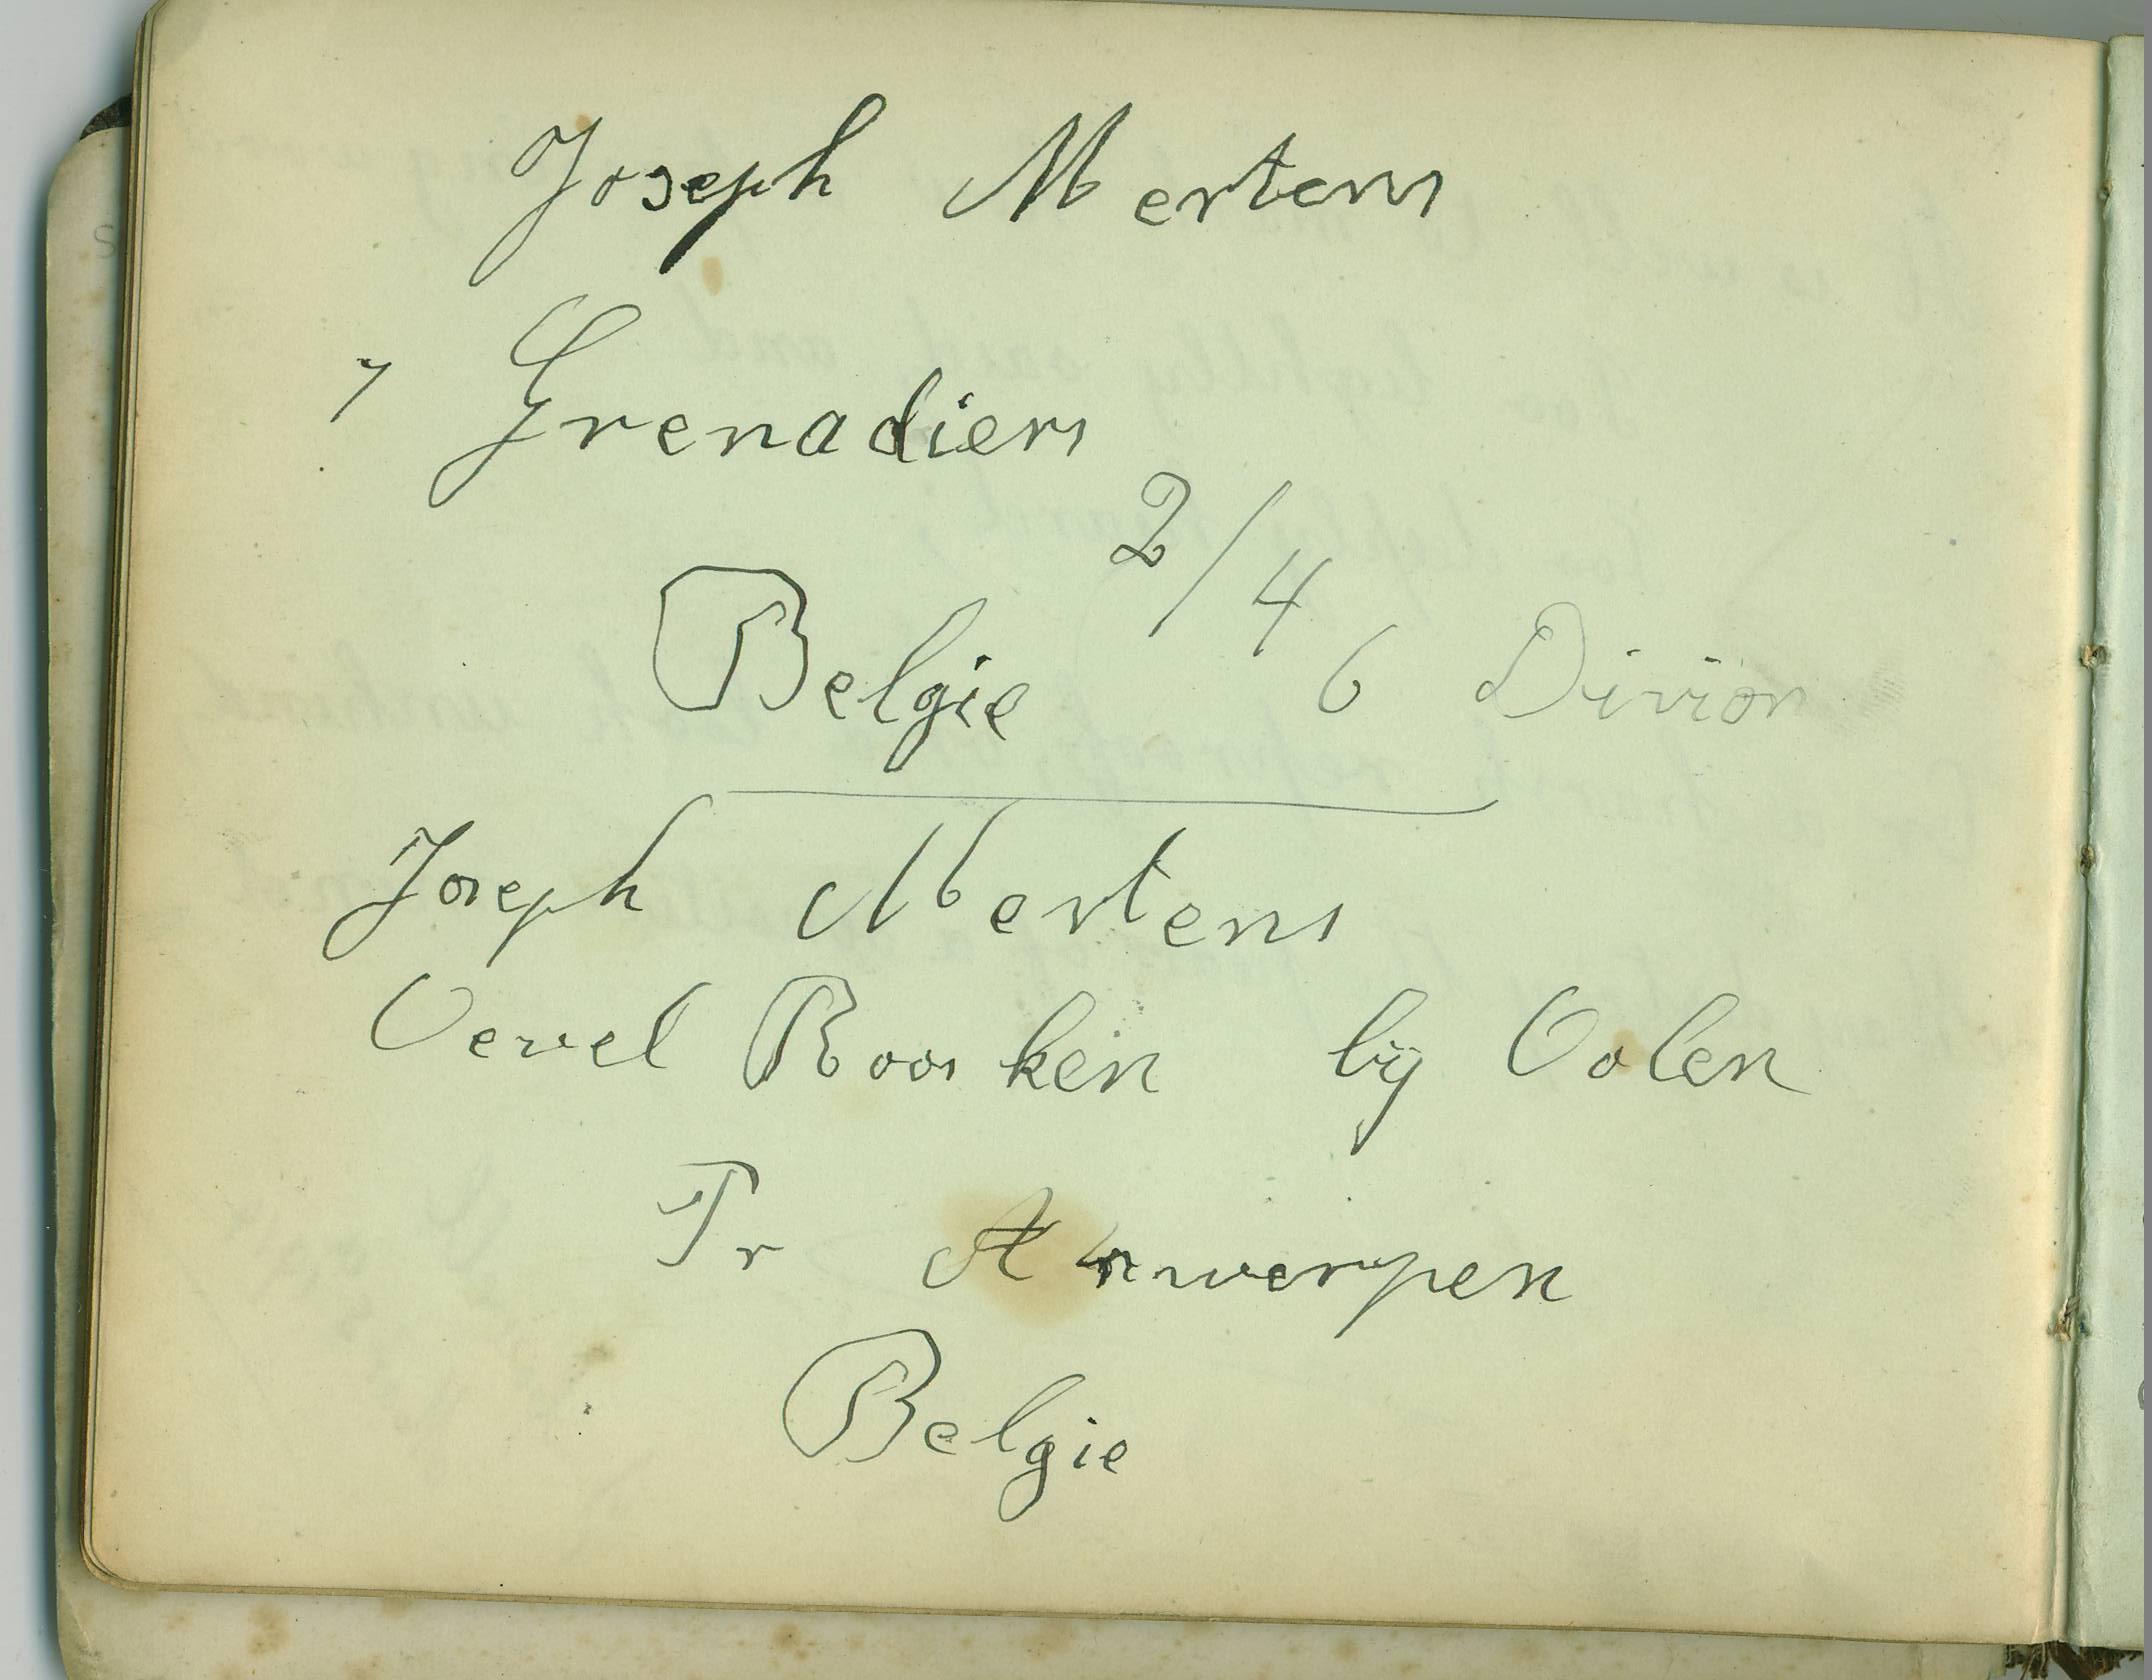 Joseph Mertens
7 Grenadiers
2/4
Belgie 6 Divion
Joseph Mertens
Oevel Roosken bij Oolen
Pr Anwerpen
Belgie